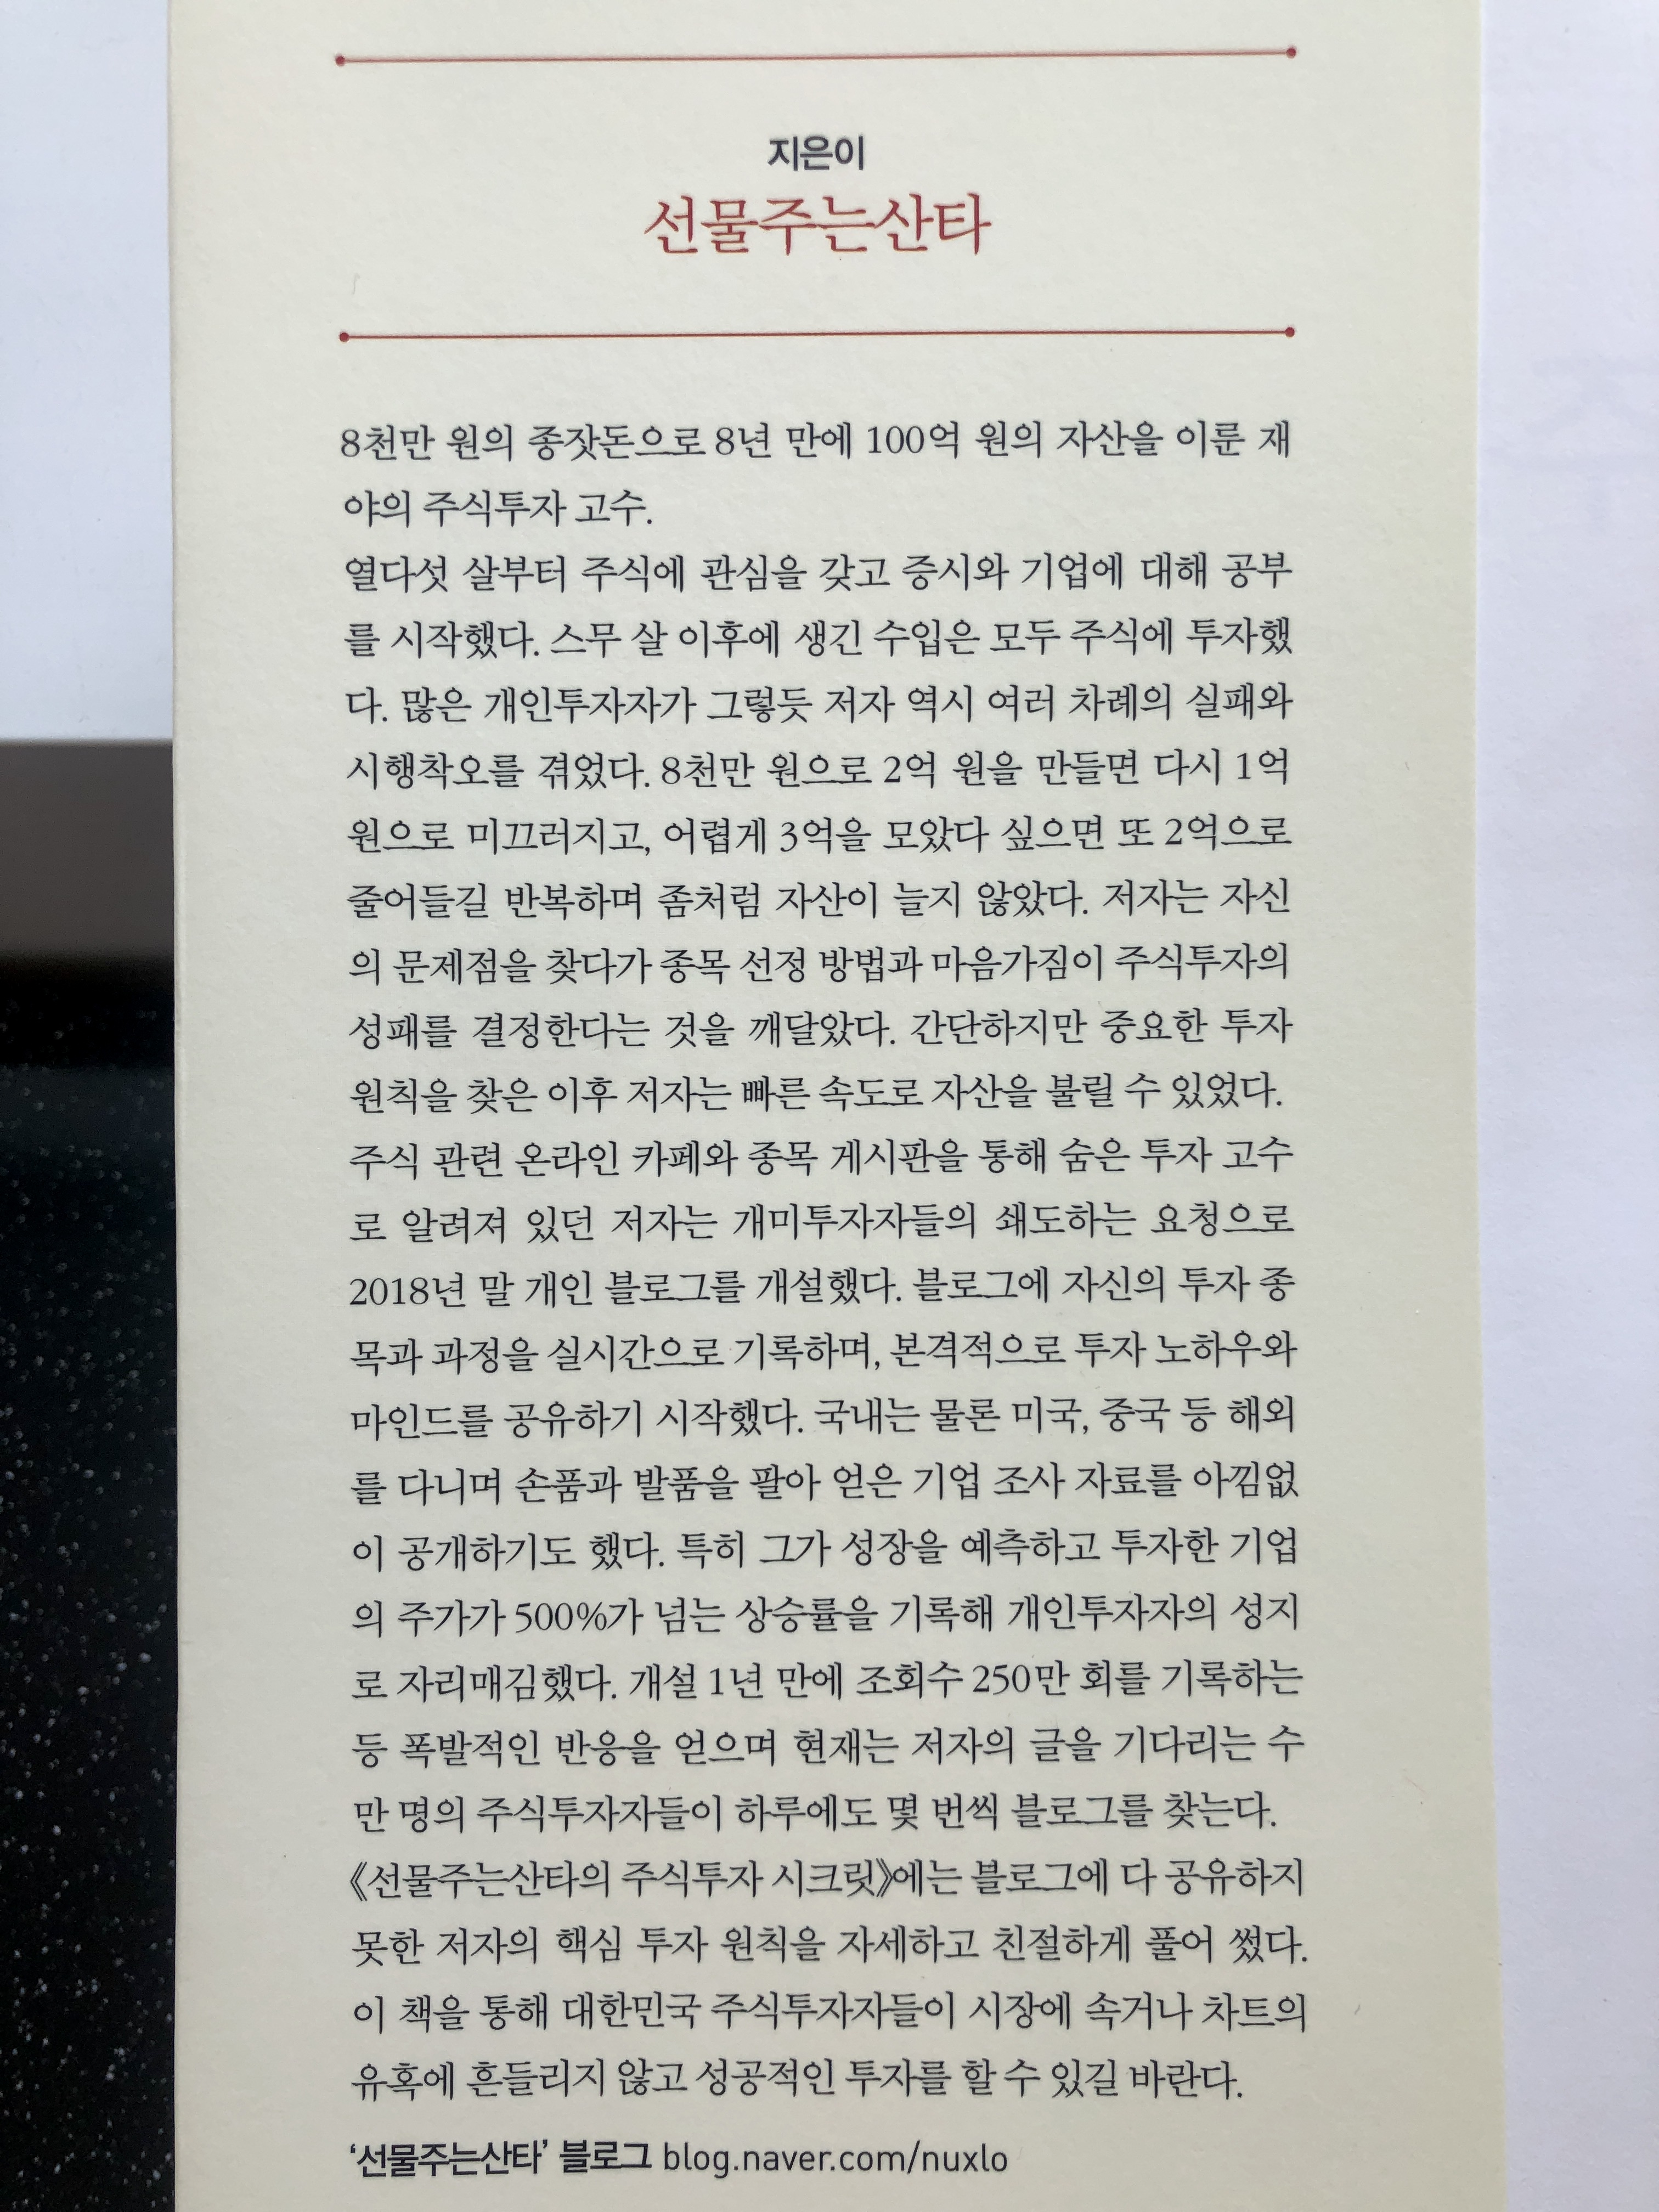 지은이
선물주는산타
8천만 원의 종잣돈으로 8년 만에 100억 원의 자산을 이룬 재
야의 주식투자 고수.
열다섯 살부터 주식에 관심을 갖고 증시와 기업에 대해 공부
를 시작했다. 스무 살 이후에 생긴 수입은 모두 주식에 투자했
다. 많은 개인투자자가 그렇듯 저자 역시 여러 차례의 실패와
시행착오를 겪었다. 8천만 원으로 2억 원을 만들면 다시 1억
원으로 미끄러지고, 어렵게 3억을 모았다 싶으면 또 2억으로
줄어들길 반복하며 좀처럼 자산이 늘지 않았다. 저자는 자신
의 문제점을 찾다가 종목 선정 방법과 마음가짐이 주식투자의
성패를 결정한다는 것을 깨달았다. 간단하지만 중요한 투자
원칙을 찾은 이후 저자는 빠른 속도로 자산을 불릴 수 있었다.
주식 관련 온라인 카페와 종목 게시판을 통해 숨은 투자 고수
로 알려져 있던 저자는 개미투자자들의 쇄도하는 요청으로
2018년 말 개인 블로그를 개설했다. 블로그에 자신의 투자 종
목과 과정을 실시간으로 기록하며, 본격적으로 투자 노하우와
마인드를 공유하기 시작했다. 국내는 물론 미국, 중국 등 해외
를 다니며 손품과 발품을 팔아 얻은 기업 조사 자료를 아낌없
이 공개하기도 했다. 특히 그가 성장을 예측하고 투자한 기업
의 주가가 500%가 넘는 상승률을 기록해 개인투자자의 성지
로 자리매김했다. 개설 1년 만에 조회수 250만 회를 기록하는
등 폭발적인 반응을 얻으며 현재는 저자의 글을 기다리는 수
만 명의 주식투자자들이 하루에도 몇 번씩 블로그를 찾는다.
《선물주는산타의 주식투자 시크릿》에는 블로그에 다 공유하지
못한 저자의 핵심 투자 원칙을 자세하고 친절하게 풀어 썼다.
이 책을 통해 대한민국 주식투자자들이 시장에 속거나 차트의
유혹에 흔들리지 않고 성공적인 투자를 할 수 있길 바란다.
‘선물주는산타’ 블로그 blog.naver.com/nuxlo